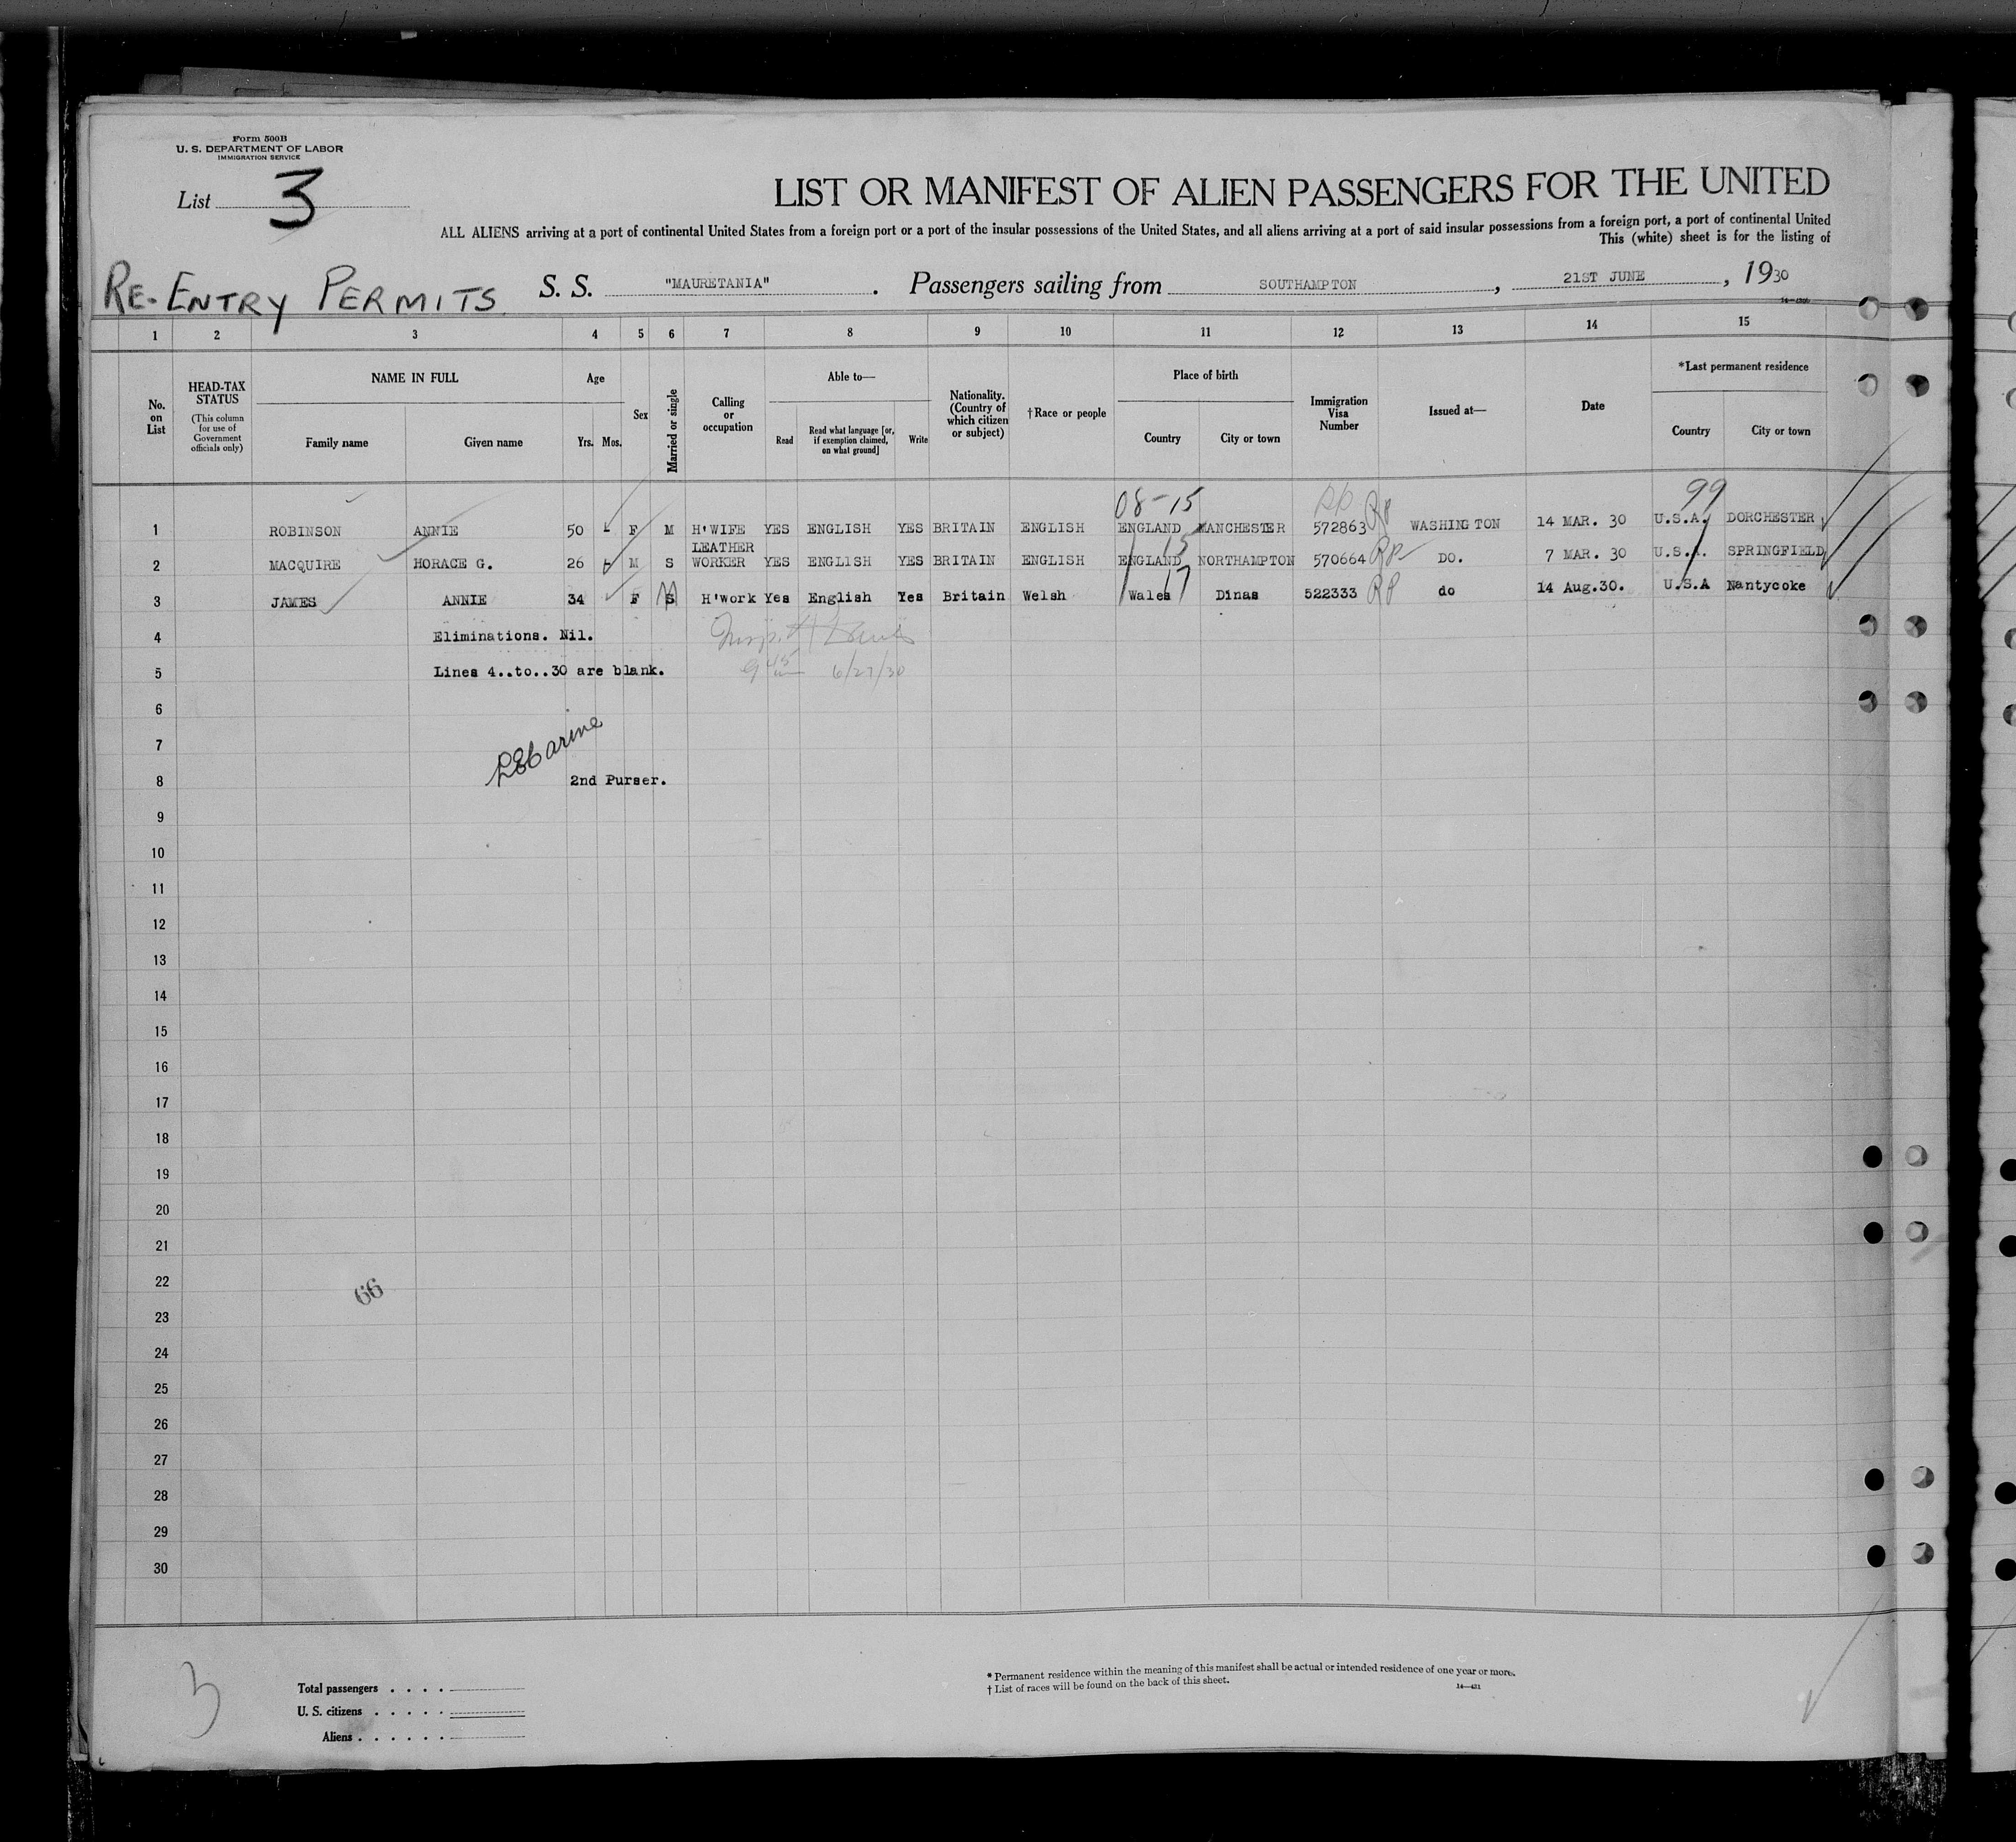 Form 500B
U. S. DEPARTMENT OF LABOR
IMMIGRATION SERVICE
List 3
LIST OR MANIFEST OF ALIEN PASSENGERS FOR THE UNITED
ALL ALIENS arriving at a port of continental United States from a foreign port or a port of the insular possessions of the United States, and all aliens arriving at a port of said insular possessions from a foreign port, a port of continental United
This (white) sheet is for the listing of
RE-ENTRY PERMITS S. S. "MAURETANIA" . Passengers sailing from SOUTHAMPTON , 21ST JUNE , 1930
1 2 3 4 5 6 7 8 9 10 11 12 13 14 15
No. on List
HEAD-TAX STATUS (This column for use of Government officials only)
NAME IN FULL
Family name Given name
Age
Yrs. Mos.
Sex
Married or single
Calling or occupation
Able to—
Read Read what language [or, if exemption claimed, on what ground] Write
Nationality. (Country of which citizen or subject)
†Race or people
Place of birth
Country City or town
Immigration Visa Number
Issued at—
Date
*Last permanent residence
Country City or town
08-15 99
1 ROBINSON ANNIE 50 F M H'WIFE YES ENGLISH YES BRITAIN ENGLISH ENGLAND MANCHESTER 572863 RP WASHINGTON 14 MAR. 30 U.S.A. DORCHESTER
LEATHER 15
2 MACQUIRE HORACE G. 26 M S WORKER YES ENGLISH YES BRITAIN ENGLISH ENGLAND NORTHAMPTON 570664 RP DO. 7 MAR. 30 U.S.A. SPRINGFIELD
17
3 JAMES ANNIE 34 F S M H'work Yes English Yes Britain Welsh Wales Dinas 522333 RP do 14 Aug.30. U.S.A Nantycoke
4 Eliminations. Nil.
5 Lines 4..to..30 are blank. 9 45 6/27/30
6
7
8 2nd Purser.
9
10
11
12
13
14
15
16
17
18
19
20
21
22
66
23
24
25
26
27
28
29
30
3
Total passengers . . . .
U. S. citizens . . . . .
Aliens . . . . . .
* Permanent residence within the meaning of this manifest shall be actual or intended residence of one year or more.
† List of races will be found on the back of this sheet.
14—431